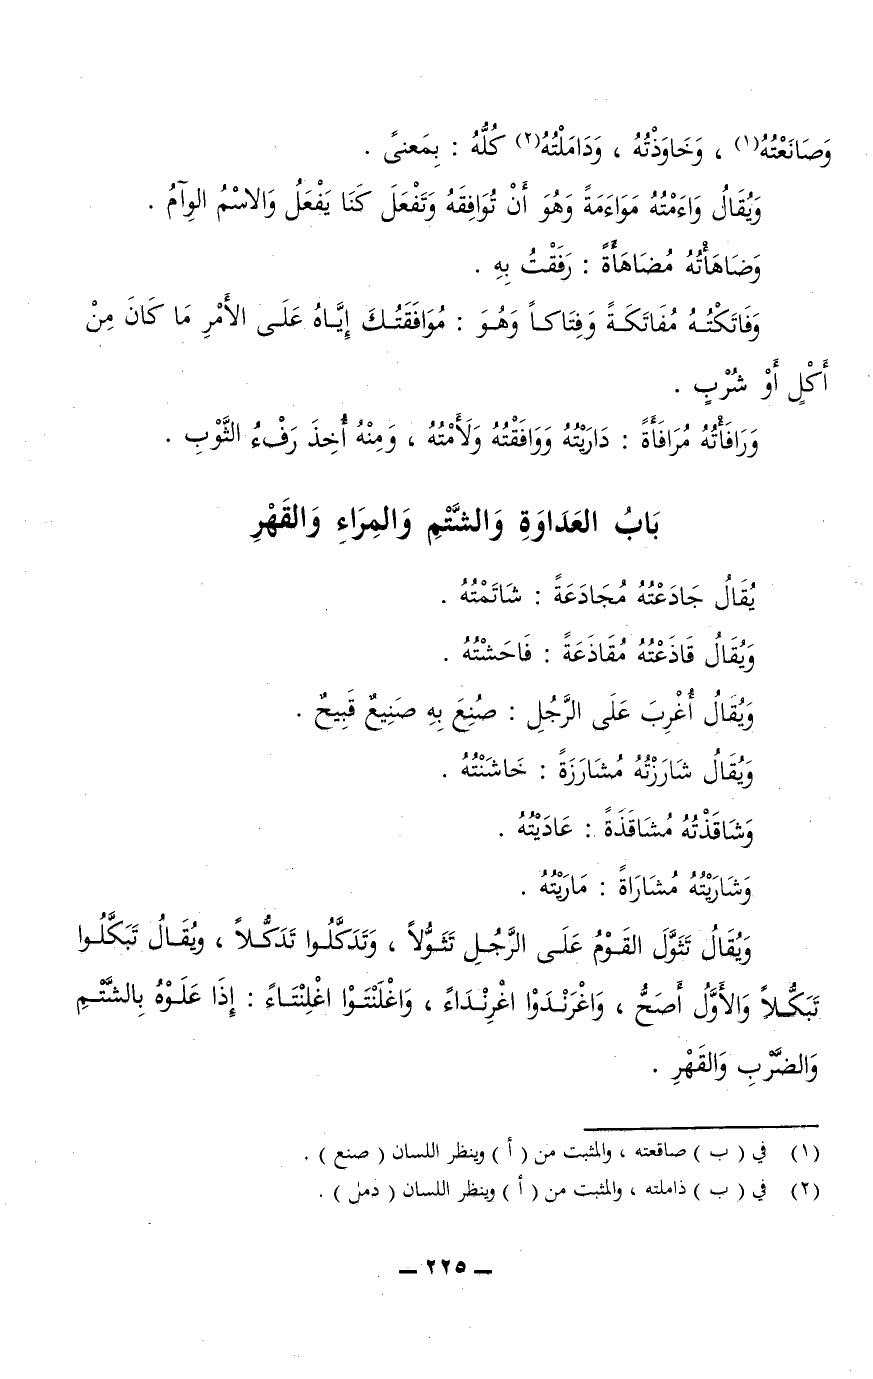 وَصَانَعْتُهُ(١) ، وَخَاوَذْتُهُ ، وَدَامَلْتُهُ(٢) كُلُّهُ : بِمَعنىً .
وَيُقَالُ وَاءَمْتُهُ مَوَاءَمَةً وَهُوَ أَنْ تُوَافِقَهُ وَتَفْعَلَ كَنَا يَفْعَلُ وَالاسْمُ الوِآمُ .
وَضَاهَأْتُهُ مُضَاهَأَةً : رَفَقْتُ بِهِ .
وَفَاتَكْتُهُ مُفَاتَكَةً وَفِتَاكاً وَهُوَ : مُوَافَقَتُكَ إِيَّاهُ عَلَى الأَمْرِ مَا كَانَ مِنْ
أَكْلٍ أَوْ شُرْبٍ .
وَرَافَأْتُهُ مُرَافَأَةً : دَارَيْتُهُ وَوَافَقْتُهُ وَلَأَمْتُهُ ، وَمِنْهُ أُخِذَ رَفْءُ الثَّوْبِ .
بَابُ العَدَاوَةِ وَالشَّتْمِ وَالمِرَاءِ وَالقَهْرِ
يُقَالُ جَادَعْتُهُ مُجَادَعَةً : شَاتَمْتُهُ .
وَيُقَالُ قَاذَعْتُهُ مُقَاذَعَةً : فَاحَشْتُهُ .
وَيُقَالُ أُغْرِبَ عَلَى الرَّجُلِ : صُنِعَ بِهِ صَنِيعٌ قَبِيحٌ .
وَيُقَالُ شَارَزْتُهُ مُشَارَزَةً : خَاشَنْتُهُ .
وَشَاقَذْتُهُ مُشَاقَذَةً : عَادَيْتُهُ .
وَشَارَيْتُهُ مُشَارَاةً : مَارَيْتُهُ .
وَيُقَالُ تَثَوَّلَ القَوْمُ عَلَى الرَّجُلِ تَثَوُّلاً ، وَتَدَكَّلُوا تَدَكُّلاً ، ويُقَالُ تَبَكَّلُوا
تَبَكُّلاً وَالأَوَّلُ أَصَحُّ ، وَاغْرَنْدَوْا اغْرِنْدَاءً ، وَاغْلَنْتَوْا اغْلِنْتَاءً : إِذَا عَلَوْهُ بِالشَّتْمِ
وَالضَّرْبِ وَالقَهْرِ .
(١) في ( ب ) صاقعته ، والمثبت من ( أ ) وينظر اللسان ( صنع ) .
(٢) في ( ب ) ذاملته ، والمثبت من ( أ ) وينظر اللسان ( دمل ) .
ــ ٢٢٥ ــ